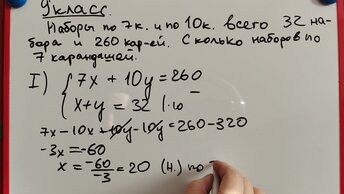 9 класс.
Наборы по 7к. и по 10к. всего 32 на-
бора и 260 кар-ей. Сколько наборов по
7 карандашей.
I) { 7x + 10y = 260
x + y = 32 | ·10 –
7x – 10x + 10y – 10y = 260 – 320
–3x = –60
x = –60/–3 = 20 (н.) по